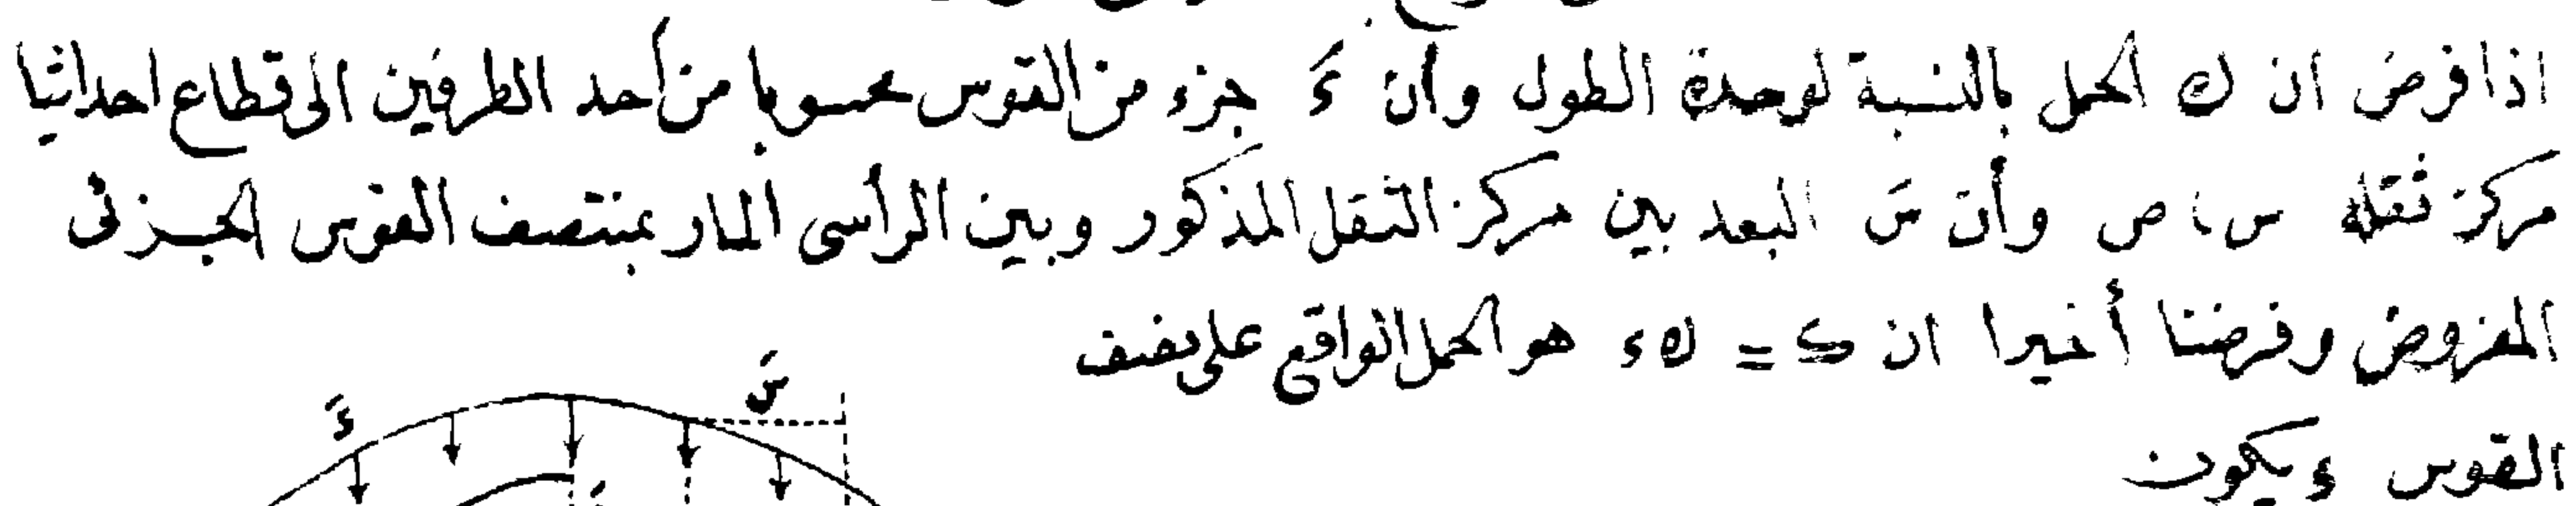 اذا فرض ان ك الحمل بالنسبة لوحدة الطول وأن ءَ جزء من القوس محسوبا من أحد الطرفين الى قطاع احداثيا
مركز ثقله س ، ص وأن سَ البعد بين مركز الثقل المذكور وبين الرأسى المار بمنتصف القوس الجزئى
المفروض وفرضنا أخيرا ان ك = ك ء هو الحمل الواقع على نصف
القوس ء يكون
سَ
ءَ